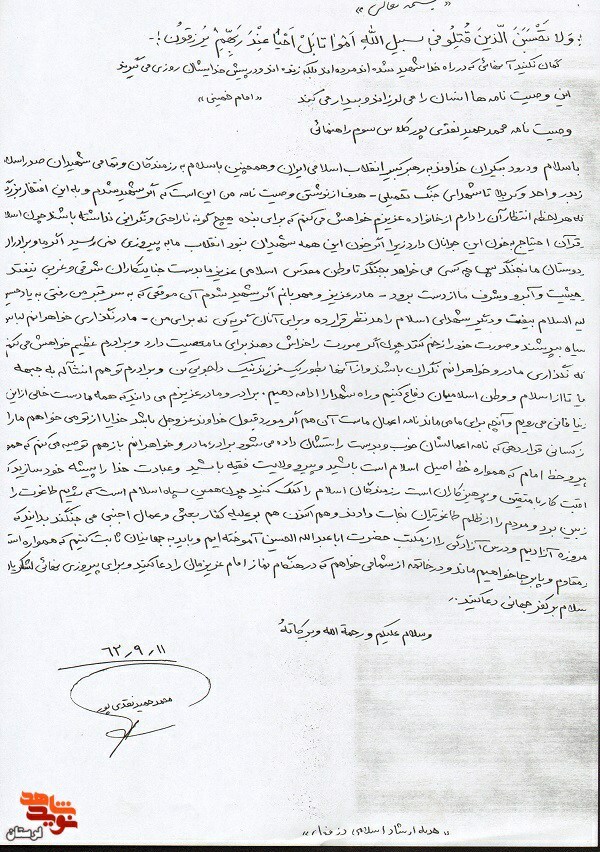 «بسمه تعالی»
«ولا تحسبن الذین قتلوا فی سبیل الله امواتا بل احیاءٌ عند ربهم یرزقون»
گمان نکنید آنهائی که در راه خدا شهید شده اند مرده اند بلکه زنده اند و در پیش خدایشان روزی می گیرند
این وصیت نامه ها انسان را می لرزاند و بیدار می کند «امام خمینی»
وصیت نامه محمد حمید نقدی پور کلاس سوم راهنمائی
با سلام و درود بیکران خداوند به رهبر کبیر انقلاب اسلامی ایران و همچنین با سلام به رزمندگان و تمامی شهیدان صدر اسلام
زبدر و احد و کربلا تا شهدای جنگ تحمیلی - هدف از نوشتن وصیت نامه من این است که اگر شهید شدم و به این افتخار بزرگ
که هر لحظه انتظار آن را دارم از خانواده عزیزم خواهش می کنم که برای بنده هیچ گونه ناراحتی و نگرانی نداشته باشند چون اسلا
قرآن احتیاج به خون این جوانان دارد زیرا اگر خون این همه شهیدان نبود انقلاب ما به پیروزی نمی رسید اگر ما و برادران
دوستان ما نجنگد پس چه کسی می خواهد بجنگد تا وطن مقدس اسلامی عزیز ما بدست جنایتکاران شرقی و غربی نیفتد
حیثیت و آبرو و شرف ما از دست برود - مادر عزیز و مهربانم اگر شهید شدم آن موقعی که به سر قبر من رفتی به یاد حسین
لیه السلام بیفت و دیگر شهدای اسلام را مد نظر قرار ده و برای آنان گریه کن نه برای من - مادر نگذاری خواهرانم لباس
سیاه بپوشند و صورت خود را زخم کنند چون اگر صورت را خراش دهند برای ما معصیت دارد و برادرم عظیم خواهش می کنم
که نگذاری مادر و خواهرانم نگران باشند و از آنها بطور یک فرزند نیک دلجویی کن و برادرم تو هم انشآ له به جبهه
یا تا از اسلام و وطن اسلامیمان دفاع کنیم و راه شهدا را ادامه دهیم. برادر و مادر عزیزم می دانید که همه ما دست خالی از این
دنیا فانی می رویم و آنچه برای ما می ماند نامه اعمال ماست آن هم اگر مورد قبول خداوند عز و جل باشد خدایا از تو می خواهم ما را
ز کسانی قرار دهی که نامه اعمالشان خوب و بدست راستشان داده می شود برادر، مادر و خواهرانم باز هم توصیه می کنم که همو
پیرو خط امام که همواره خط اصیل اسلام است باشید و پیرو ولایت فقیه باشید و عبادت خدا را پیشه خود سازید که
اقبت کار با متقین و پرهیزکاران است رزمندگان اسلام را کمک کنید چون همین سپاه اسلام است که رژیم طاغوت را
زبین برد و مردم را از ظلم طاغوتیان نجات دادند و هم اکنون هم بر علیه کفار بعثی و عمال اجنبی می جنگند بدانند که
مروزه آزادیم و درس آزادگی را از مکتب حضرت ابا عبدالله الحسین آموخته ایم و باید به جهانیان ثابت کنیم که همواره است
مقاوم و پا برجا خواهیم ماند و در خاتمه از شما می خواهم که در هنگام نماز امام عزیزمان را دعا کنید و برای پیروزی نهائی لشگریان
سلام بر کفر جهانی دعا کنید..
وسلام علیکم و رحمة الله و برکاته
۶۲-۹-۱۱
محمد حمید نقدی پور
نوید شاهد
لرستان
«هدیه ارشاد اسلامی